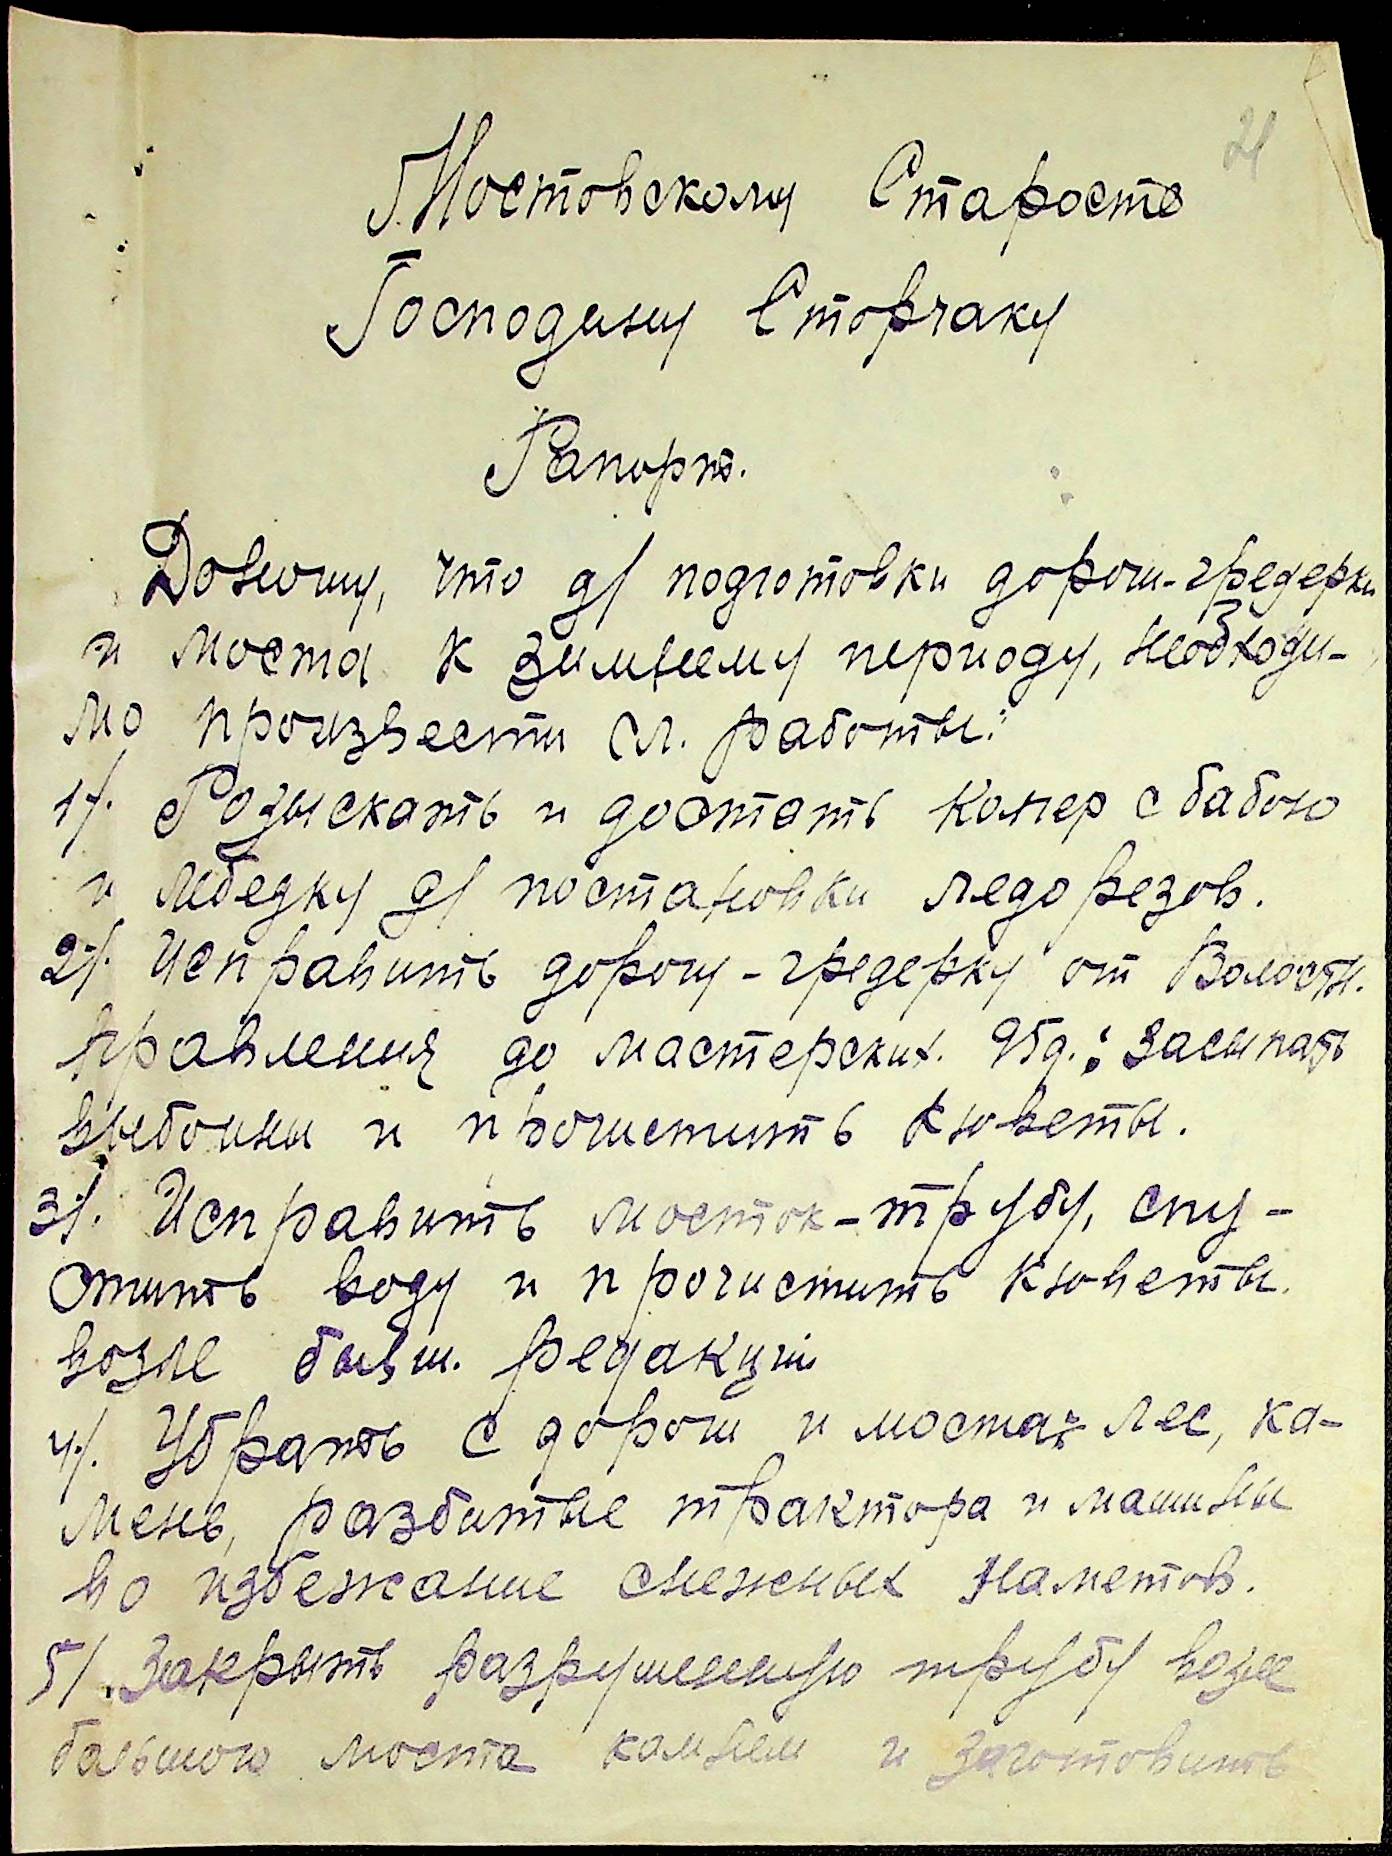 21
Мостовскому Старосте
Господину Сторчаку
Рапорт.
Доношу, что д/ подготовки дороги-гредерки
и моста к зимнему периоду, необходи-
мо произвести сл. работы:
1/. Розыскать и достать копер с бабою
и лебедку д/ постановки ледорезов.
2/. Исправить дорогу-гредерку от Волостн.
правления до мастерских. : Засыпать
выбоины и прочистить кюветы.
3/. Исправить мосток-трубу, спу-
стить воду и прочистить кюветы
возле бывш. редакции
4/. Убрать с дороги и моста: лес, ка-
мень, разбитые трактора и машины
во избежание снежных наметов.
5/. Закрыть разрушенную трубу возле
большого моста камнем и заготовить